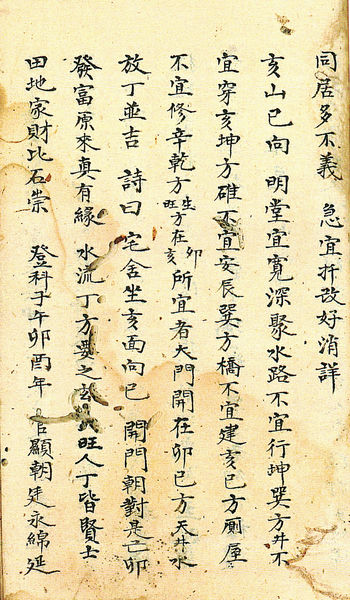 同居多不義 急宜扦改好消詳
亥山巳向 明堂宜寬深聚水路不宜行坤巽方井不
宜穿亥坤方碓不宜安辰巽方橋不宜建亥巳方厠屋
不宜修辛乾方生方在卯旺方在亥所宜者大門開在卯巳方天井水
放丁並吉 詩曰 宅舍坐亥面向巳 開門朝對是乙卯
發富原來真有緣 水流丁方要之玄 旺人丁皆賢士
田地家財比石崇 登科子午卯酉年 官顯朝廷永綿延